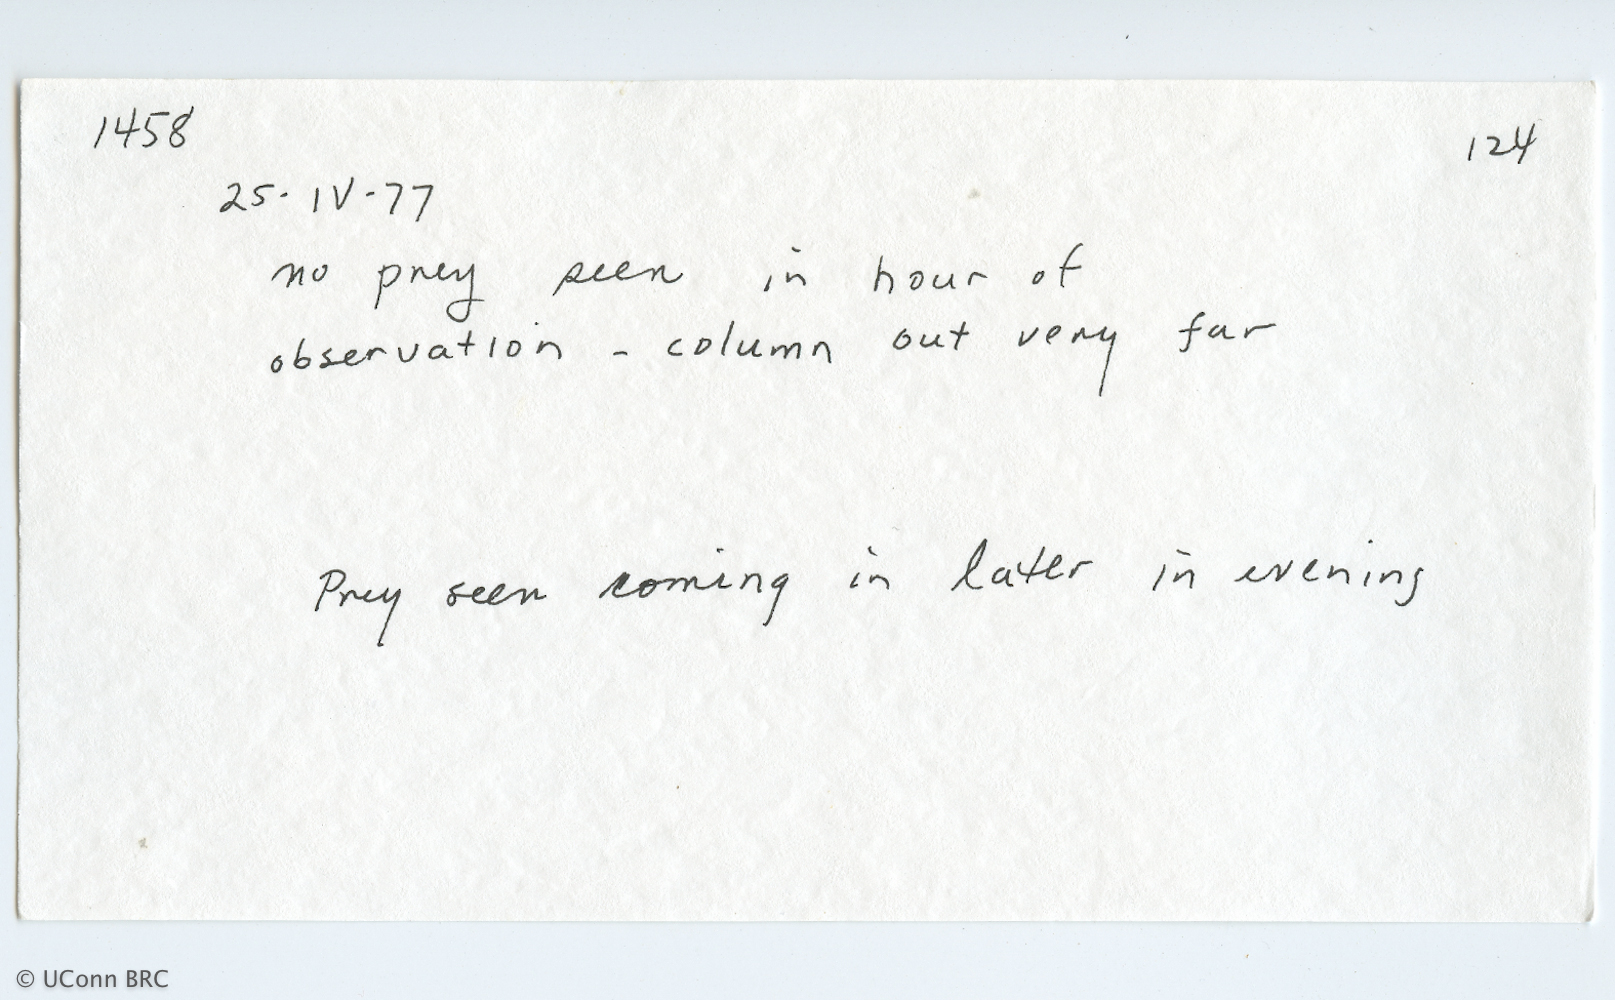 1458
124
25-IV-77
no prey seen in hour of
observation - column out very far
Prey seen coming in later in evening
© UConn BRC